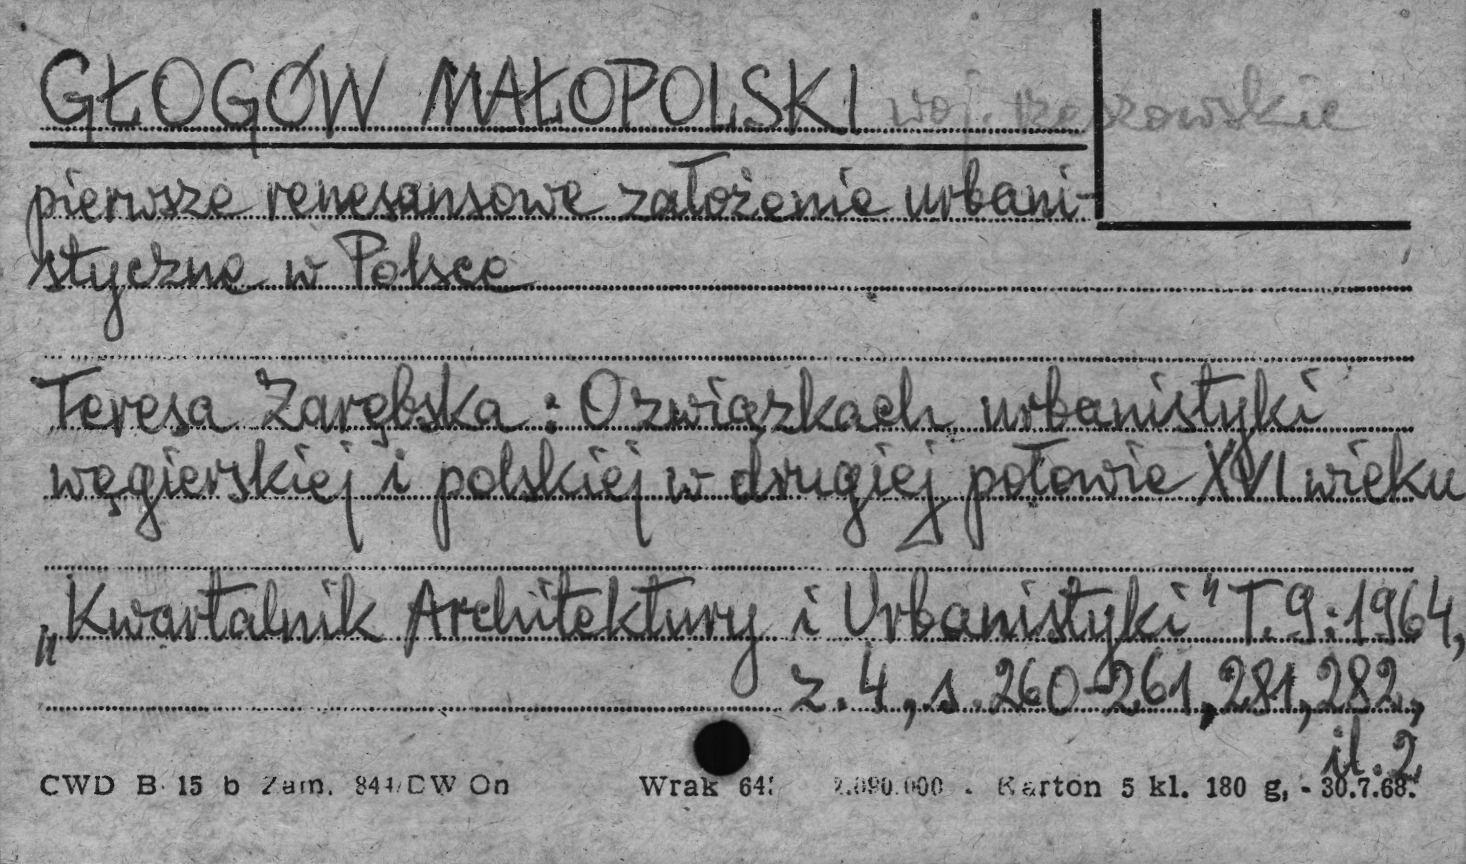 GŁOGÓW MAŁOPOLSKI woj. rzeszowskie
pierwsze renesansowe założenie urbani-
styczne w Polsce
Teresa Zarębska : O związkach urbanistyki
węgierskiej i polskiej w drugiej połowie XVI wieku
„Kwartalnik Architektury i Urbanistyki" T. 9 : 1964,
z. 4, s. 260-261, 281, 282,
il. 2
CWD B 15 b Zam. 844/CW On Wrak 2.090.000 . Karton 5 kl. 180 g, - 30.7.68.